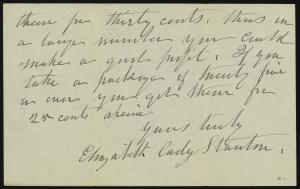 them for thirty cents. Thus in
a large number you could
make a good profit. If you
take a package of twenty five
or over you get them for
25 cents apiece
Yours truly
Elizabeth Cady Stanton.